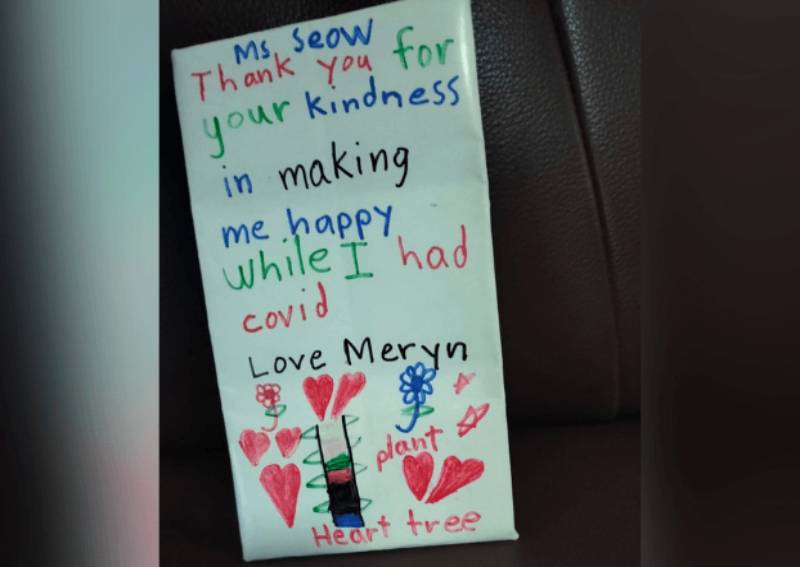 Ms. Seow
Thank you for
your kindness
in making
me happy
while I had
covid
Love Meryn
plant
Heart tree